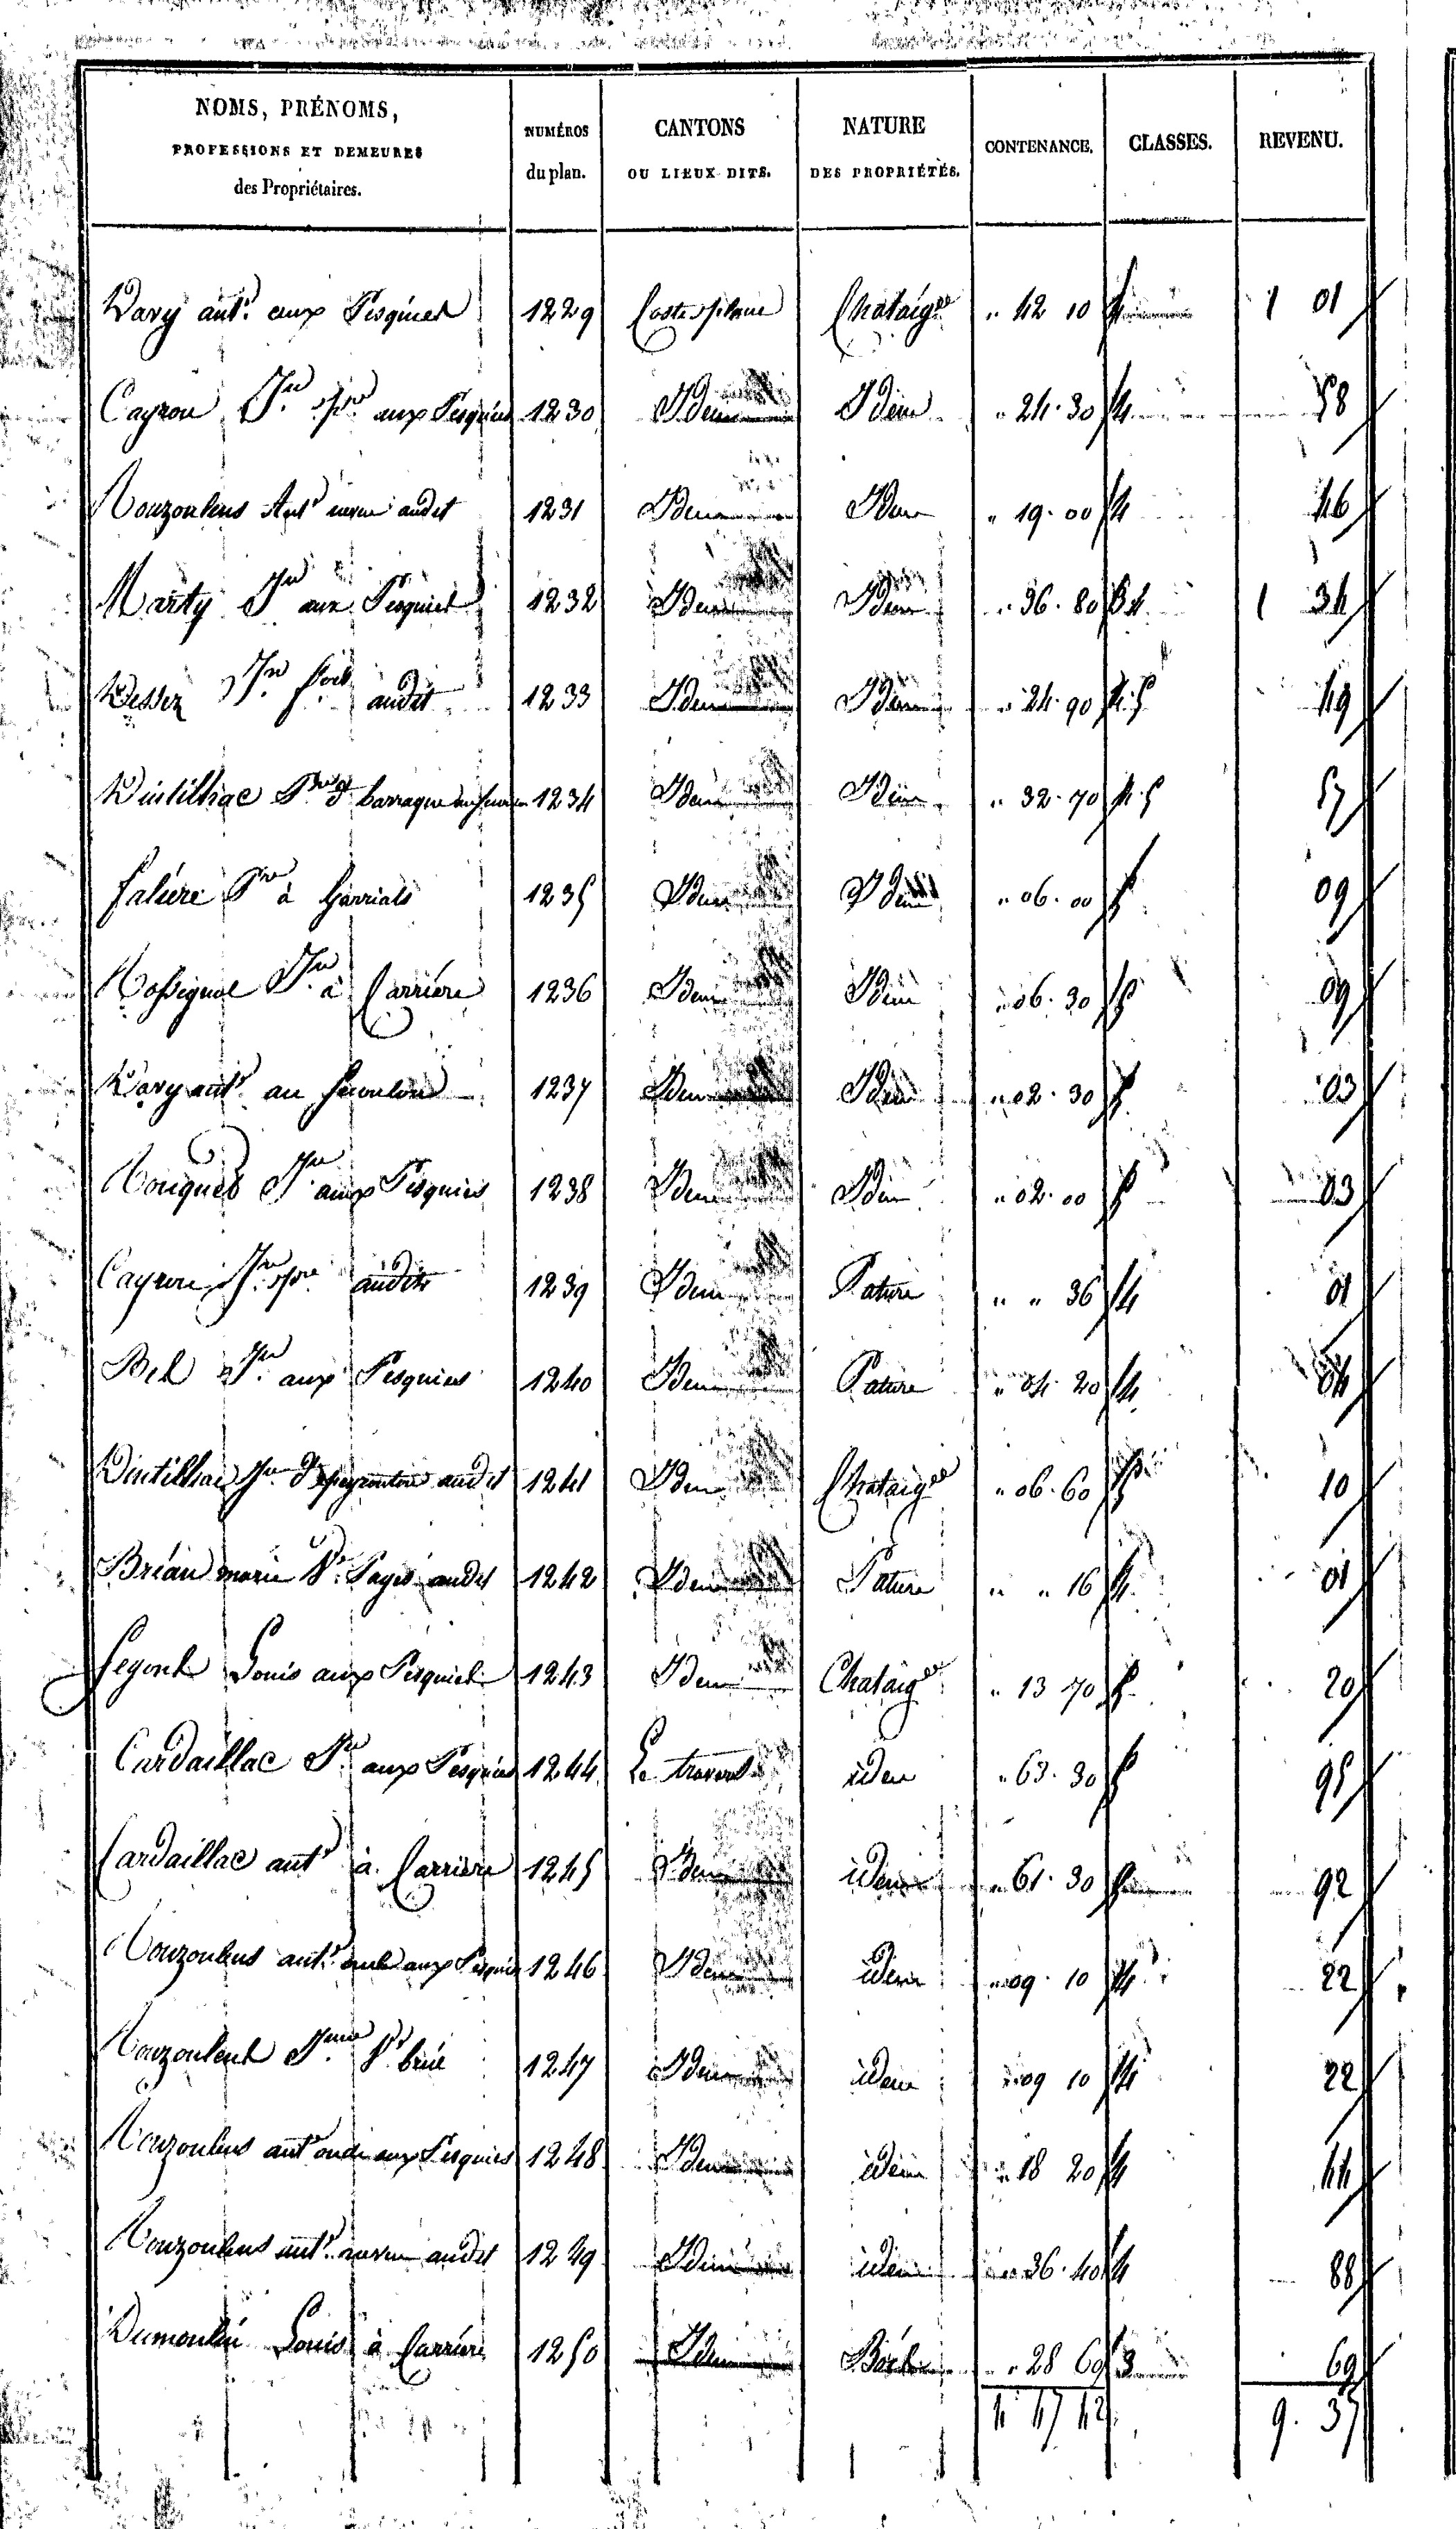 NOMS, PRÉNOMS, PROFESSIONS ET DEMEURES des Propriétaires. NUMÉROS du plan. CANTONS OU LIEUX DITS. NATURE DES PROPRIÉTÉS. CONTENANCE. CLASSES. REVENU.
Davy antᵉ aux Pesquiés 1229 Coste plane Chataigᵉᵉ " 42 10 4 1 01
Cayrou Jⁿ Pʳᵉ aux Pesquiés 1230 Idem Idem " 24. 30 4 58
Mouzoulens Antᵉ neveu audit 1231 Idem Idem " 19. 00 4 46
Marty Jⁿ aux Pesquiés 1232 Idem Idem " 36. 80 3.4 1 34
Jⁿ audit 1233 Idem Idem " 24. 90 4.5 49
Vintilhac Pʳᵉ dᵗ barraque 1234 Idem Idem " 32. 70 4.5 57
Falière Pʳᵉ à Garrials 1235 Idem Idem " 06. 00 5 09
Rossignol Jⁿ à Carrière 1236 Idem Idem " 06. 30 5 09
Davy antᵉ au 1237 Idem Idem " 02. 30 5 03
Nougués Jⁿ aux Pesquiés 1238 Idem Idem " 02. 00 5 03
Cayrou Jⁿ Pʳᵉ audit 1239 Idem Pature " " 36 4 01
Bel Jⁿ aux Pesquiés 1240 Idem Pature " 04. 20 4 04
Vintilhac Jⁿ dᵗ peyrouton audit 1241 Idem Chataigᵉᵉ " 06. 60 5 10
Bréau marie Vᵉ Pagés audit 1242 Idem Pature " " 16 4 01
Segond Louis aux Pesquiés 1243 Idem Chataigᵉᵉ " 13 70 5 20
Cardaillac Jⁿ aux Pesquiés 1244 Le travers idem " 63. 30 5 95
Cardaillac antᵉ à Carrière 1245 Idem idem " 61. 30 5 92
Mouzoulens antᵉ oncle aux Pesquiés 1246 Idem idem " 09. 10 4 22
Mouzoulens Jⁿᵉ Vᵉ brié 1247 Idem idem " 09 10 4 22
Mouzoulens antᵉ oncle aux Pesquiés 1248 Idem idem " 18 20 4 44
Mouzoulens antᵉ neveu audit 1249 Idem idem " 36. 40 4 88
Dumoulin Louis à Carrière 1250 Idem Bois " 28 60 3 69
4 47 42 9. 37